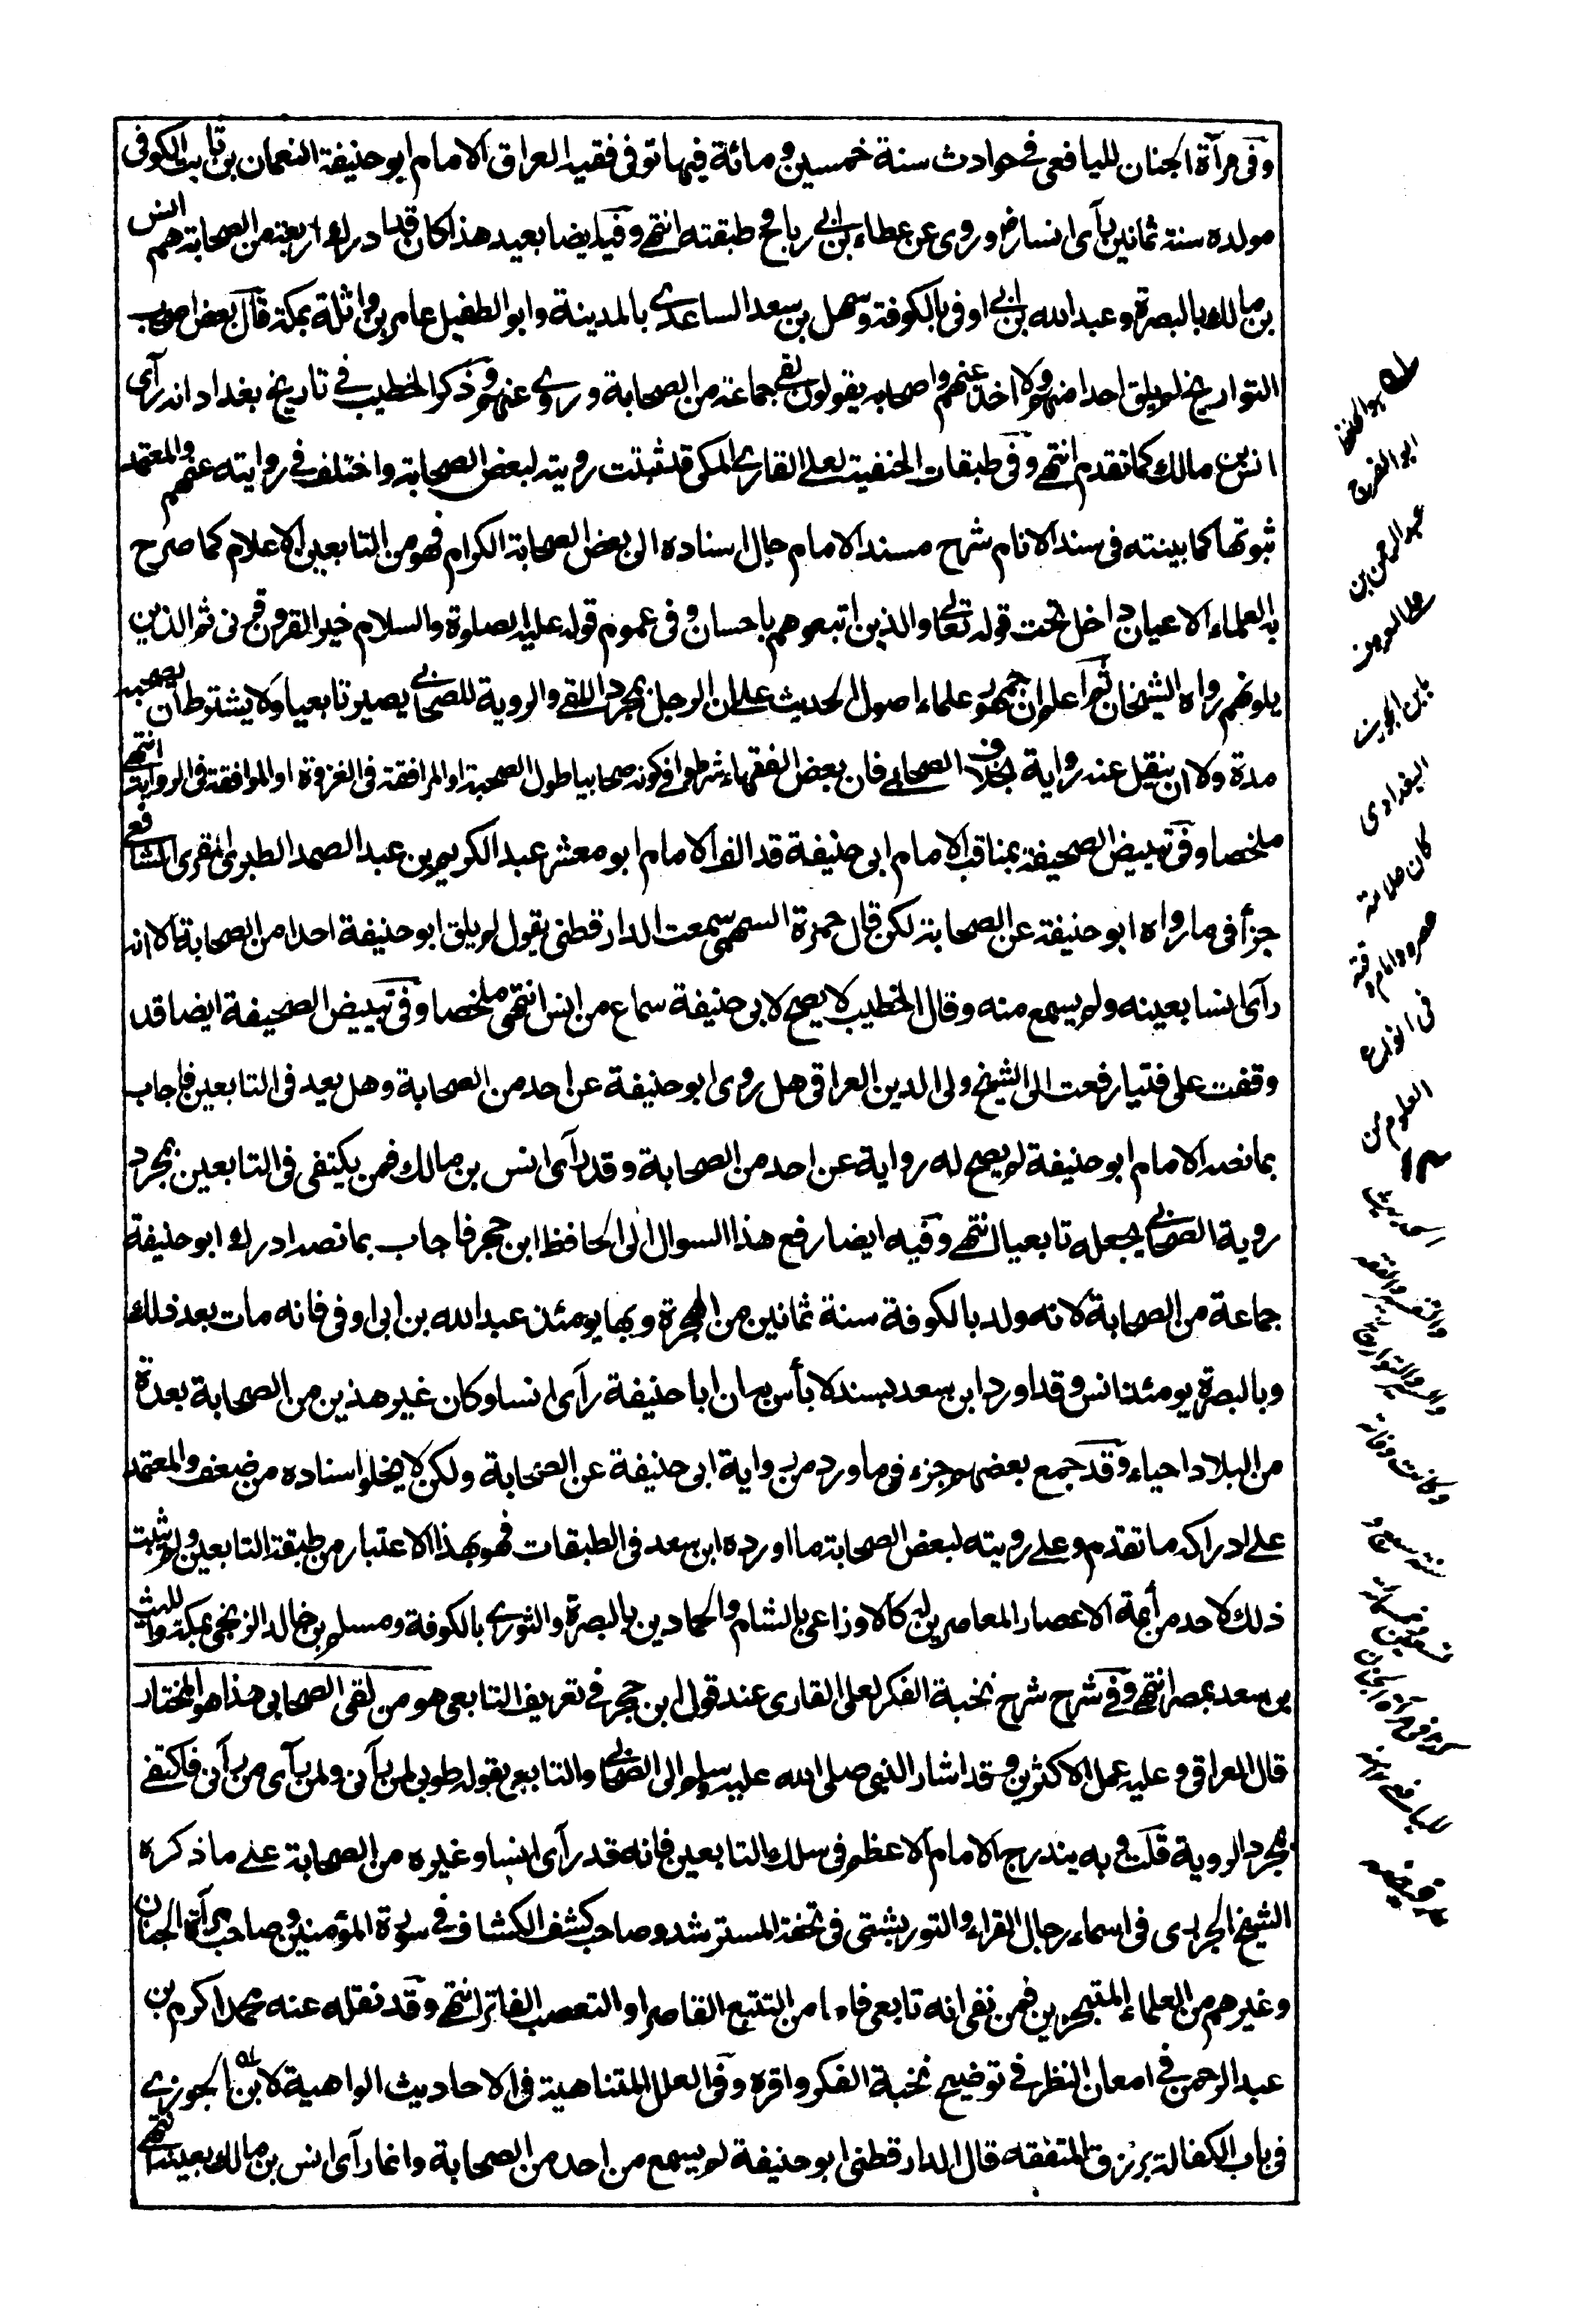 وفى مرآة الجنان لليافعى فى حوادث سنة خمسين ومائة فيها توفى فقيه العراق الامام ابو حنيفة النعمان بن ثابت الكوفى
مولده سنة ثمانين رآى انسا وروى عن عطاء بن ابى رباح وطبقته انتهى وفيه ايضا بعيد هذا كان قد ادرك اربعة من الصحابة هم انس
بن مالك بالبصرة وعبد الله بن ابى اوفى بالكوفة وسهل بن سعد الساعدى بالمدينة وابو الطفيل عامر بن واثلة بمكة قال بعض اصحاب
التواريخ لم يلق احدا منهم ولا اخذ عنهم واصحابه يقولون لقى جماعة من الصحابة وروى عنهم وذكر الخطيب فى تاريخ بغداد انه رآى
انس بن مالك كما تقدم انتهى وفى طبقات الحنفية لعلى القارى المكى قد ثبتت رويته لبعض الصحابة واختلف فى روايته عنهم والمعتمد
ثبوتها كما بينته فى سند الانام شرح مسند الامام حال اسناده الى بعض الصحابة الكرام فهو من التابعين الاعلام كما صرح
به العلماء الاعيان داخل تحت قوله تعالى والذين اتبعوهم باحسان وفى عموم قوله عليه الصلوة والسلام خير القرون قرنى ثم الذين
يلونهم رواه الشيخان ثم اعلم ان جمهور علماء اصول الحديث على ان الرجل بمجرد اللقى والروية للصحابى يصير تابعيا ولا يشترط ان يصحبه
مدة ولا ان ينقل عنه رواية بخلاف الصحابى فان بعض الفقهاء شرطوا فى كونه صحابيا طول الصحبة او المرافقة فى الغزوة او الموافقة فى الرواية انتهى
ملخصا وفى تبييض الصحيفة بمناقب الامام ابى حنيفة قد الف الامام ابو معشر عبد الكريم بن عبد الصمد الطبرى المقرى الشافعى
جزأ فى ما رواه ابو حنيفة عن الصحابة لكن قال حمزة السهمى سمعت الدارقطنى يقول لم يلق ابو حنيفة احدا من الصحابة الا انه
رآى انسا بعينه ولم يسمع منه وقال الخطيب لا يصح لابى حنيفة سماع من انس انتهى ملخصا وفى تبييض الصحيفة ايضا قد
وقفت على فتيا رفعت الى الشيخ ولى الدين العراقى هل روى ابو حنيفة عن احد من الصحابة وهل يعد فى التابعين فاجاب
بما نصه الامام ابو حنيفة لم يصح له رواية عن احد من الصحابة وقد رآى انس بن مالك فمن يكتفى فى التابعين بمجرد
روية الصحابى يجعله تابعيا انتهى وفيه ايضا رفع هذا السوال الى الحافظ ابن حجر فاجاب بما نصه ادرك ابو حنيفة
جماعة من الصحابة لانه ولد بالكوفة سنة ثمانين من الهجرة وبها يومئذ عبد الله بن ابى اوفى فانه مات بعد ذلك
وبالبصرة يومئذ انس وقد اورد ابن سعد بسند لا بأس به ان ابا حنيفة رآى انسا وكان غير هذين من الصحابة بعدة
من البلاد احياء وقد جمع بعضهم جزء فى ما ورد من رواية ابى حنيفة عن الصحابة ولكن لا يخلو اسناده من ضعف والمعتمد
على ادراكه ما تقدم وعلى رويته لبعض الصحابة ما اورده ابن سعد فى الطبقات فهو بهذا الاعتبار من طبقة التابعين ولم يثبت
ذلك لاحد من أئمة الاعصار المعاصرين له كالاوزاعى بالشام والحمادين بالبصرة والثورى بالكوفة ومسلم بن خالد الزنجى بمكة والليث
بن سعد بمصر انتهى وفى شرح شرح نخبة الفكر لعلى القارى عند قول ابن حجر فى تعريف التابعى هو من لقى الصحابى هذا هو المختار
قال العراقى وعليه عمل الاكثرين وقد اشار النبى صلى الله عليه وسلم الى الصحابى والتابعى بقوله طوبى لمن رآنى ولمن رآى من رآنى فاكتفى
بمجرد الروية قلت وبه يندرج الامام الاعظم فى سلك التابعين فانه قد رآى انسا وغيره من الصحابة على ما ذكره
الشيخ الجزرى فى اسماء رجال القراء والتوربشتى فى تحفة المسترشد وصاحب كشف الكشاف فى سورة المؤمنين وصاحب مرآة الجنان
وغيرهم من العلماء المتبحرين فمن نفى انه تابعى فاما من التتبع القاصر او التعصب الفاتر انتهى وقد نقله عنه محمد اكرم بن
عبد الرحمن فى امعان النظر فى توضيح نخبة الفكر واقره وفى العلل المتناهية فى الاحاديث الواهية لابن الجوزى
فى باب الكفالة برزق المتفقه قال الدارقطنى ابو حنيفة لم يسمع من احد من الصحابة وانما رآى انس بن مالك بعينه انتهى
ابو الفرج
عبد الرحمن بن
على المعروف
بابن الجوزى
البغدادى
كان علامة
عصره وامام وقته
فى انواع
العلوم من
والتفسير والفقه
وكانت وفاته